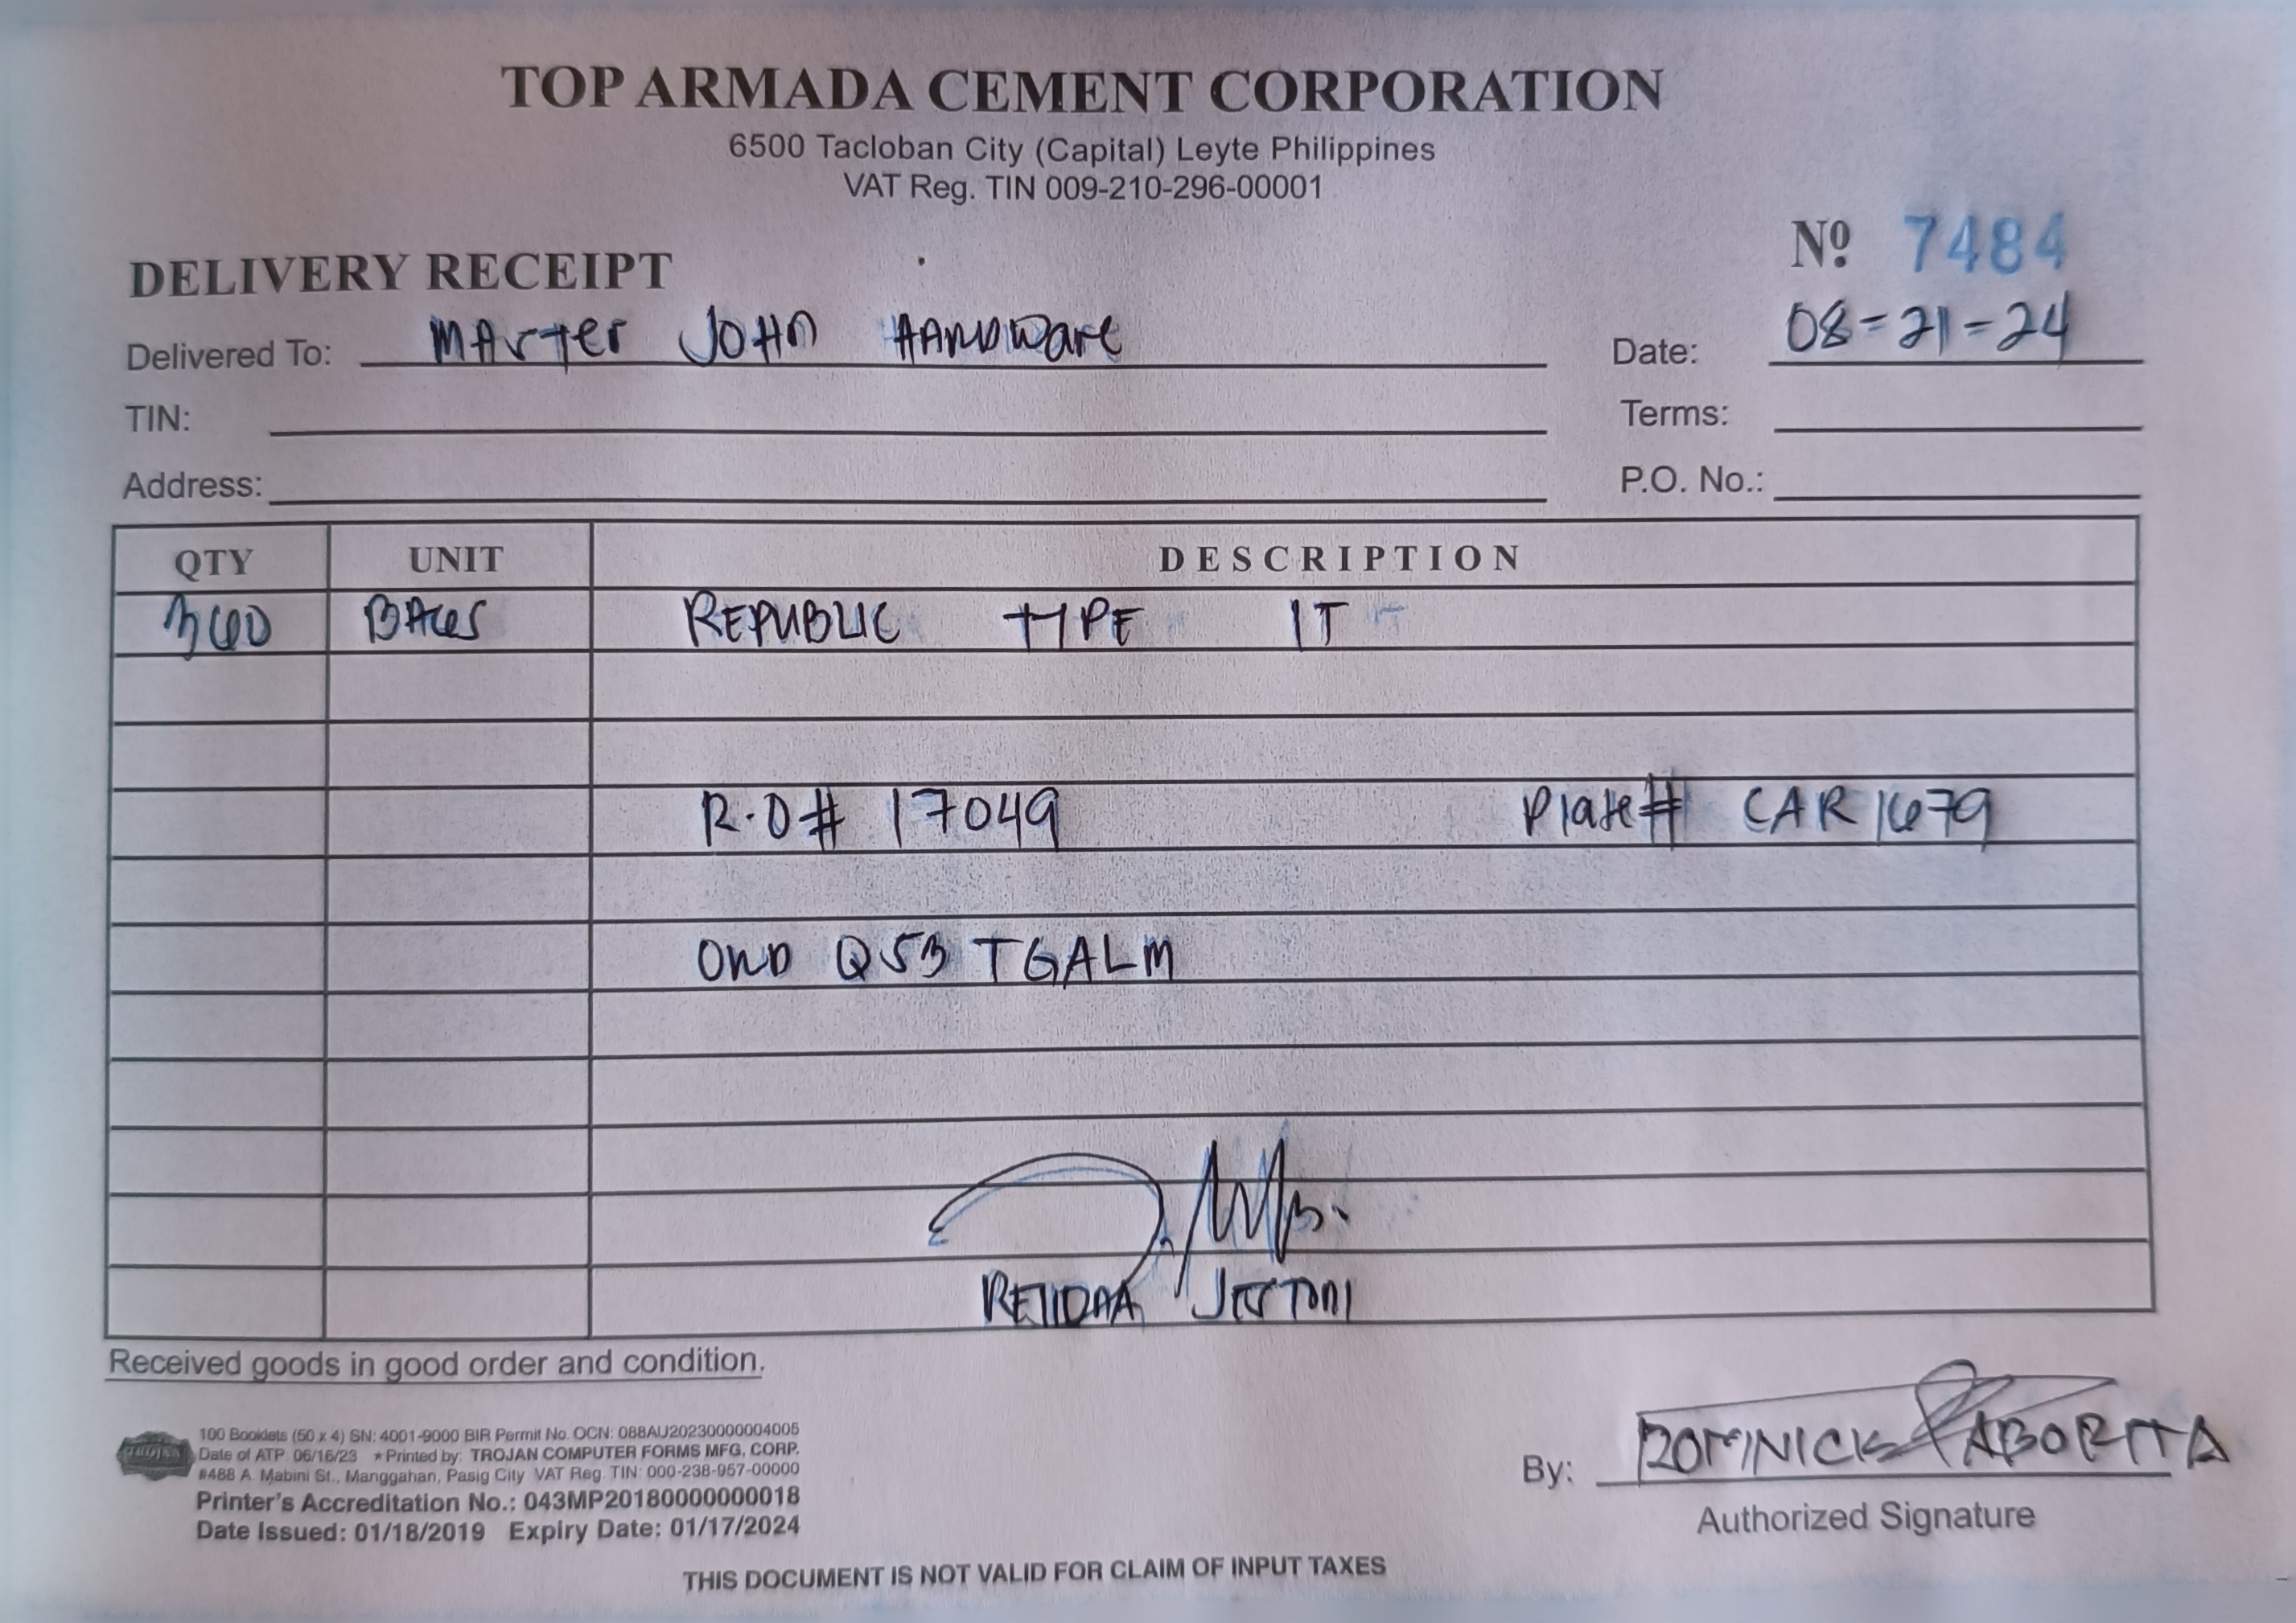 TOP ARMADA CEMENT CORPORATION
6500 Tacloban City (Capital) Leyte Philippines
VAT Reg. TIN 009-210-296-00001
Nº 7484
DELIVERY RECEIPT
Delivered To: Master John Hardware Date: 08-21-24
TIN: Terms:
Address: P.O. No.:
QTY UNIT DESCRIPTION
360 BAGS REPUBLIC TYPE IT
R.O# 17049 Plate# CAR 1679
OWD Q53 TGALM
Received goods in good order and condition.
100 Booklets (50 x 4) SN: 4001-9000 BIR Permit No. OCN: 088AU20230000004005
Date of ATP: 06/16/23 ★Printed by: TROJAN COMPUTER FORMS MFG, CORP.
#488 A. Mabini St., Manggahan, Pasig City VAT Reg. TIN: 000-238-957-00000
Printer's Accreditation No.: 043MP20180000000018
Date Issued: 01/18/2019 Expiry Date: 01/17/2024
By: DOMINICK ABORITA
Authorized Signature
THIS DOCUMENT IS NOT VALID FOR CLAIM OF INPUT TAXES